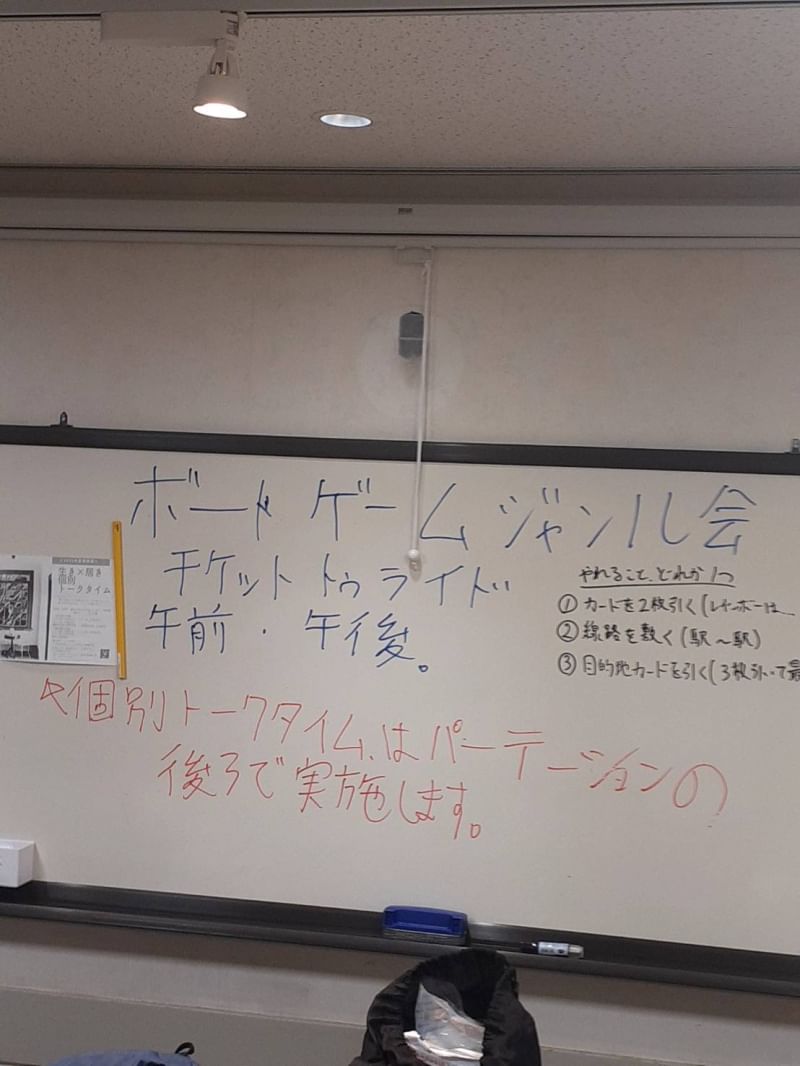 ボードゲームジャンル会
チケットトゥライド
午前・午後。
やれること、どれか1つ
① カードを2枚引く(レインボーは
② 線路を敷く(駅〜駅)
③ 目的地カードを引く(3枚引いて最
生き×聴き
個別
トークタイム
個別トークタイム、はパーテーションの
後ろで実施します。